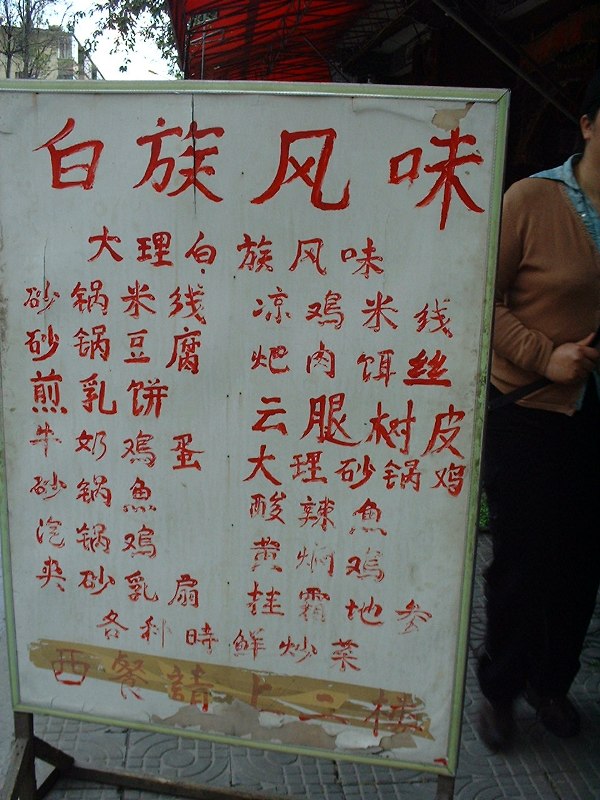 白族风味
大理白族风味
砂锅米线 凉鸡米线
砂锅豆腐 𤆵肉饵丝
煎乳饼 云腿树皮
牛奶鸡蛋 大理砂锅鸡
砂锅魚 酸辣魚
汽锅鸡 黄焖鸡
夹砂乳扇 挂霜地参
各种時鲜炒菜
西餐請上二楼